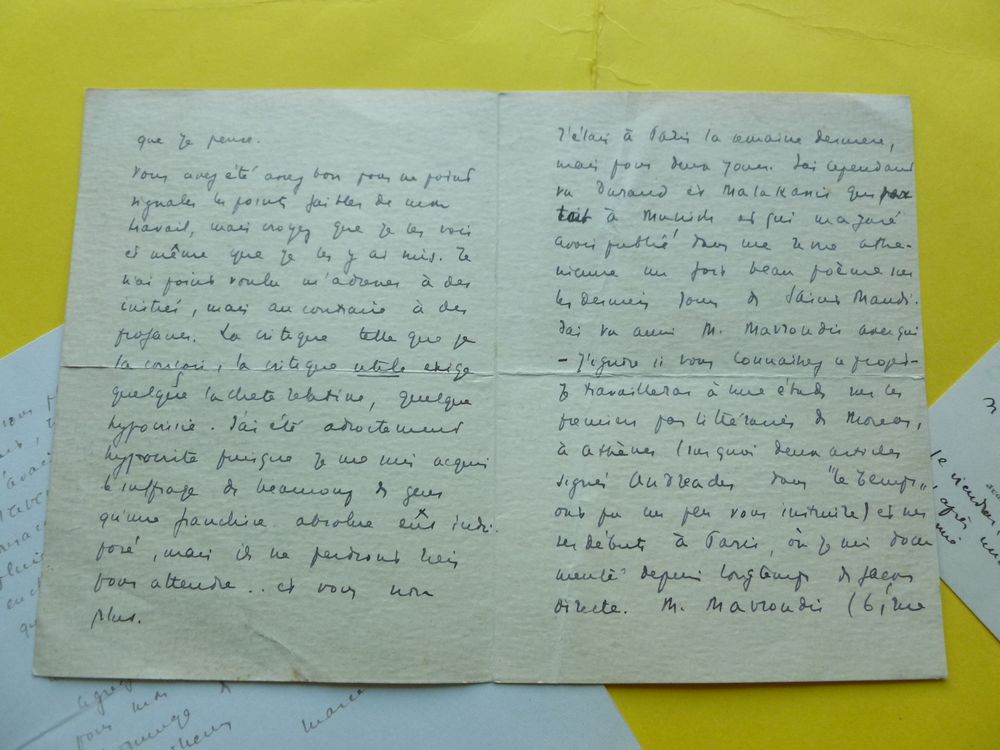 que je pense.
Vous avez été assez bon pour ne point
signaler les points faibles de mon
travail, mais croyez que je les vois
et même que je les y ai mis. Je
n'ai point voulu m'adresser à des
initiés, mais au contraire à des
profanes. La critique telle que je
la conçois, la critique utile exige
quelque lacheté relative, quelque
hypocrisie. J'ai été adroitement
hypocrite puisque je me suis acquis
le suffrage de beaucoup de gens
qu'une franchise absolue eût indis
posé, mais ils ne perdront rien
pour attendre.. et vous non
plus.
J'étais à Paris la semaine dernière,
mais pour deux jours. J'ai cependant
vu Durand et Malakasis qui par
tait à Munich et qui m'a juré
avoir publié dans une revue athé-
nienne un fort beau poème sur
les derniers jours de Saint Mandé.
J'ai vu aussi M. Mavroudis avec qui
- J'ignore si vous connaissez ce projet -
je travaillerai à une étude sur les
premiers pas littéraires de Moréas,
à Athènes (sur quoi deux articles
signés Andréadès dans "le Temps"
ont pu un peu vous instruire) et sur
ses débuts à Paris, où je suis docu
menté depuis longtemps de façon
directe. M. Mavroudis (6, rue
marce